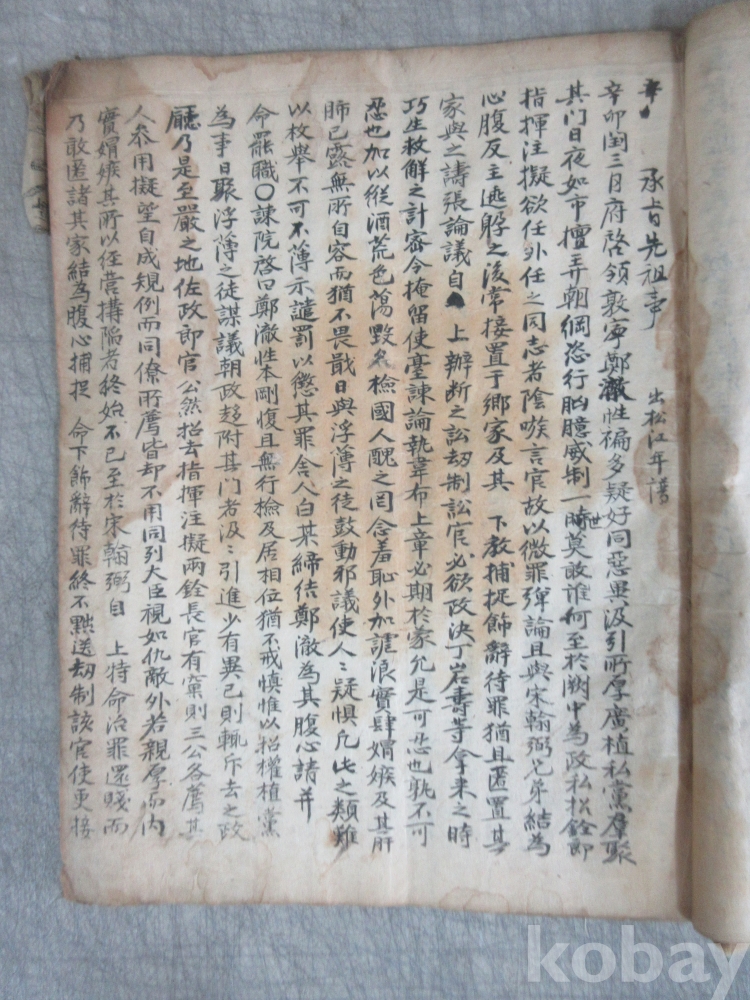 辛 承旨先祖事 出松江年譜
辛卯閏三月府啓領敦寧鄭澈性褊多疑好同惡異汲引所厚廣植私黨羣聚
其門日夜如市擅弄朝綱恣行胸臆威制一時世莫敢誰何至於闕中為政私招銓郎
指揮注擬欲任外任之同志者陰嗾言官故以微罪彈論且與宋翰弼兄弟結為
心腹反主逃躱之後常接置于鄉家及其 下教捕捉飾辭待罪猶且匿置其
家與之譸張論議自 上辦断之訟刼制訟官必欲改決丁岩壽等拿來之時
巧生救解之計審令掩留使臺諫論執韋布上章必期於蒙允是可忍也孰不可
忍也加以縱酒荒色蕩毁名檢國人醜之罔念羞恥外加謔浪實肆媢嫉及其肝
肺已露無所自容而猶不畏戢日與浮薄之徒鼓動邪議使人〻疑惧凡此之類難
以枚舉不可不薄示譴罰以懲其罪舍人白某締結鄭澈為其腹心請并
命罷職〇諫院啓曰鄭澈性本剛愎且無行檢及居相位猶不戒慎惟以招權植黨
為事日聚浮薄之徒謀議朝政趍附其門者汲〻引進少有異已則輒斥去之政
廳乃是至嚴之地佐政郎官公然招去指揮注擬兩銓長官有窠則三公各薦其
人叅用擬望自成規例而同僚所薦皆却不用同列大臣視如仇敵外若親厚而內
實媢嫉其所以經營搆陷者終始不已至於宋翰弼自 上特命治罪還賤而
乃敢匿諸其家結為腹心捕捉 命下飾辭待罪終不㸃送刼制該官使更接
kobay